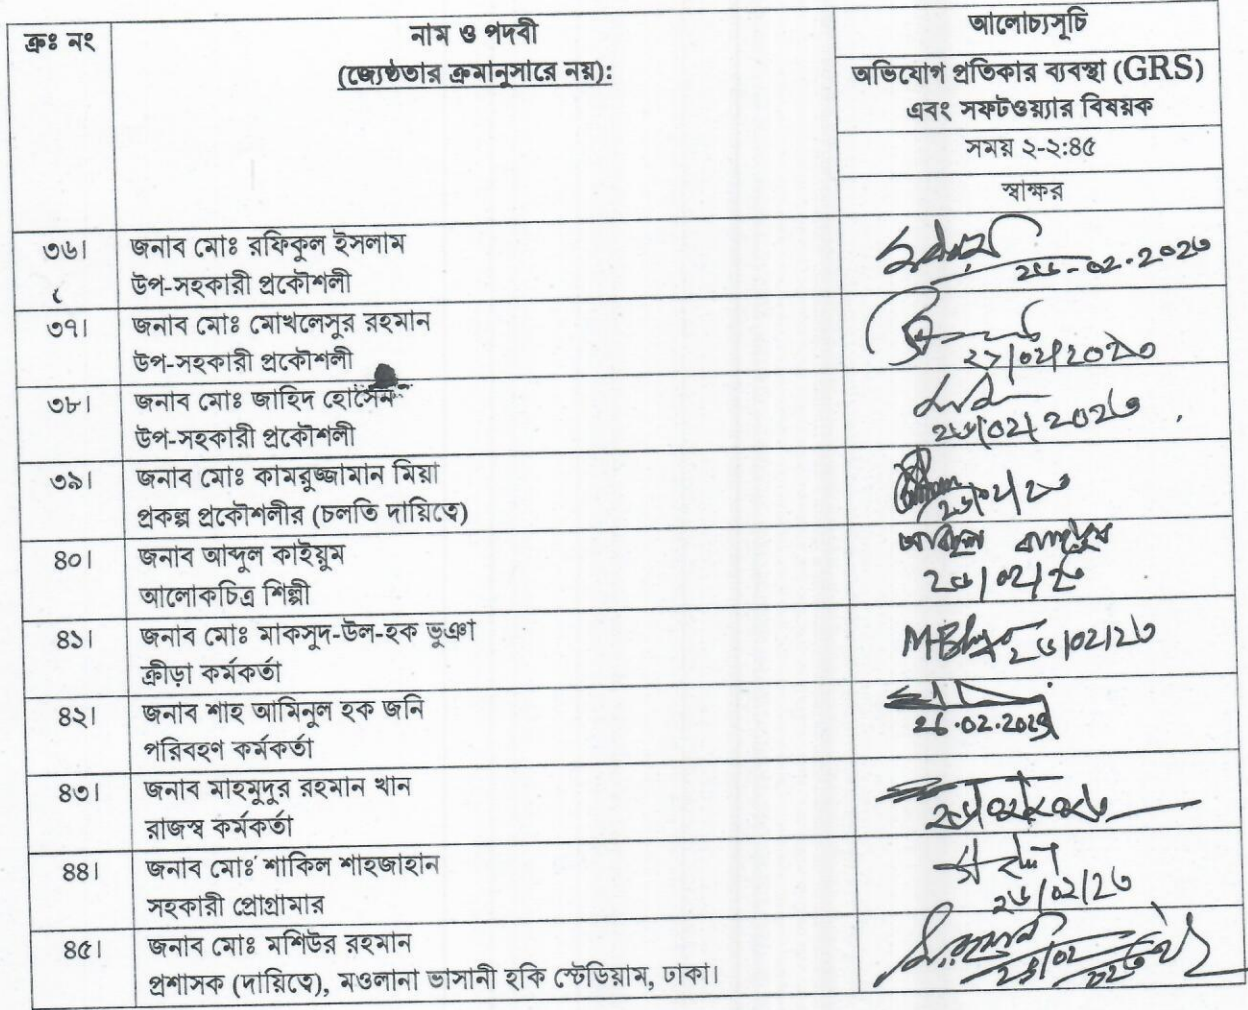 ক্রঃ নং
নাম ও পদবী
(জ্যেষ্ঠতার ক্রমানুসারে নয়):
আলোচ্যসূচি
অভিযোগ প্রতিকার ব্যবস্থা (GRS)
এবং সফটওয়্যার বিষয়ক
সময় ২-২:৪৫
স্বাক্ষর
৩৬।
জনাব মোঃ রফিকুল ইসলাম
উপ-সহকারী প্রকৌশলী
৩৭।
জনাব মোঃ মোখলেসুর রহমান
উপ-সহকারী প্রকৌশলী
৩৮।
জনাব মোঃ জাহিদ হোসেন
উপ-সহকারী প্রকৌশলী
৩৯।
জনাব মোঃ কামরুজ্জামান মিয়া
প্রকল্প প্রকৌশলীর (চলতি দায়িত্বে)
৪০।
জনাব আব্দুল কাইয়ুম
আলোকচিত্র শিল্পী
৪১।
জনাব মোঃ মাকসুদ-উল-হক ভুঞা
ক্রীড়া কর্মকর্তা
৪২।
জনাব শাহ আমিনুল হক জনি
পরিবহণ কর্মকর্তা
26.02.2023
৪৩।
জনাব মাহমুদুর রহমান খান
রাজস্ব কর্মকর্তা
৪৪।
জনাব মোঃ শাকিল শাহজাহান
সহকারী প্রোগ্রামার
৪৫।
জনাব মোঃ মশিউর রহমান
প্রশাসক (দায়িত্বে), মওলানা ভাসানী হকি স্টেডিয়াম, ঢাকা।